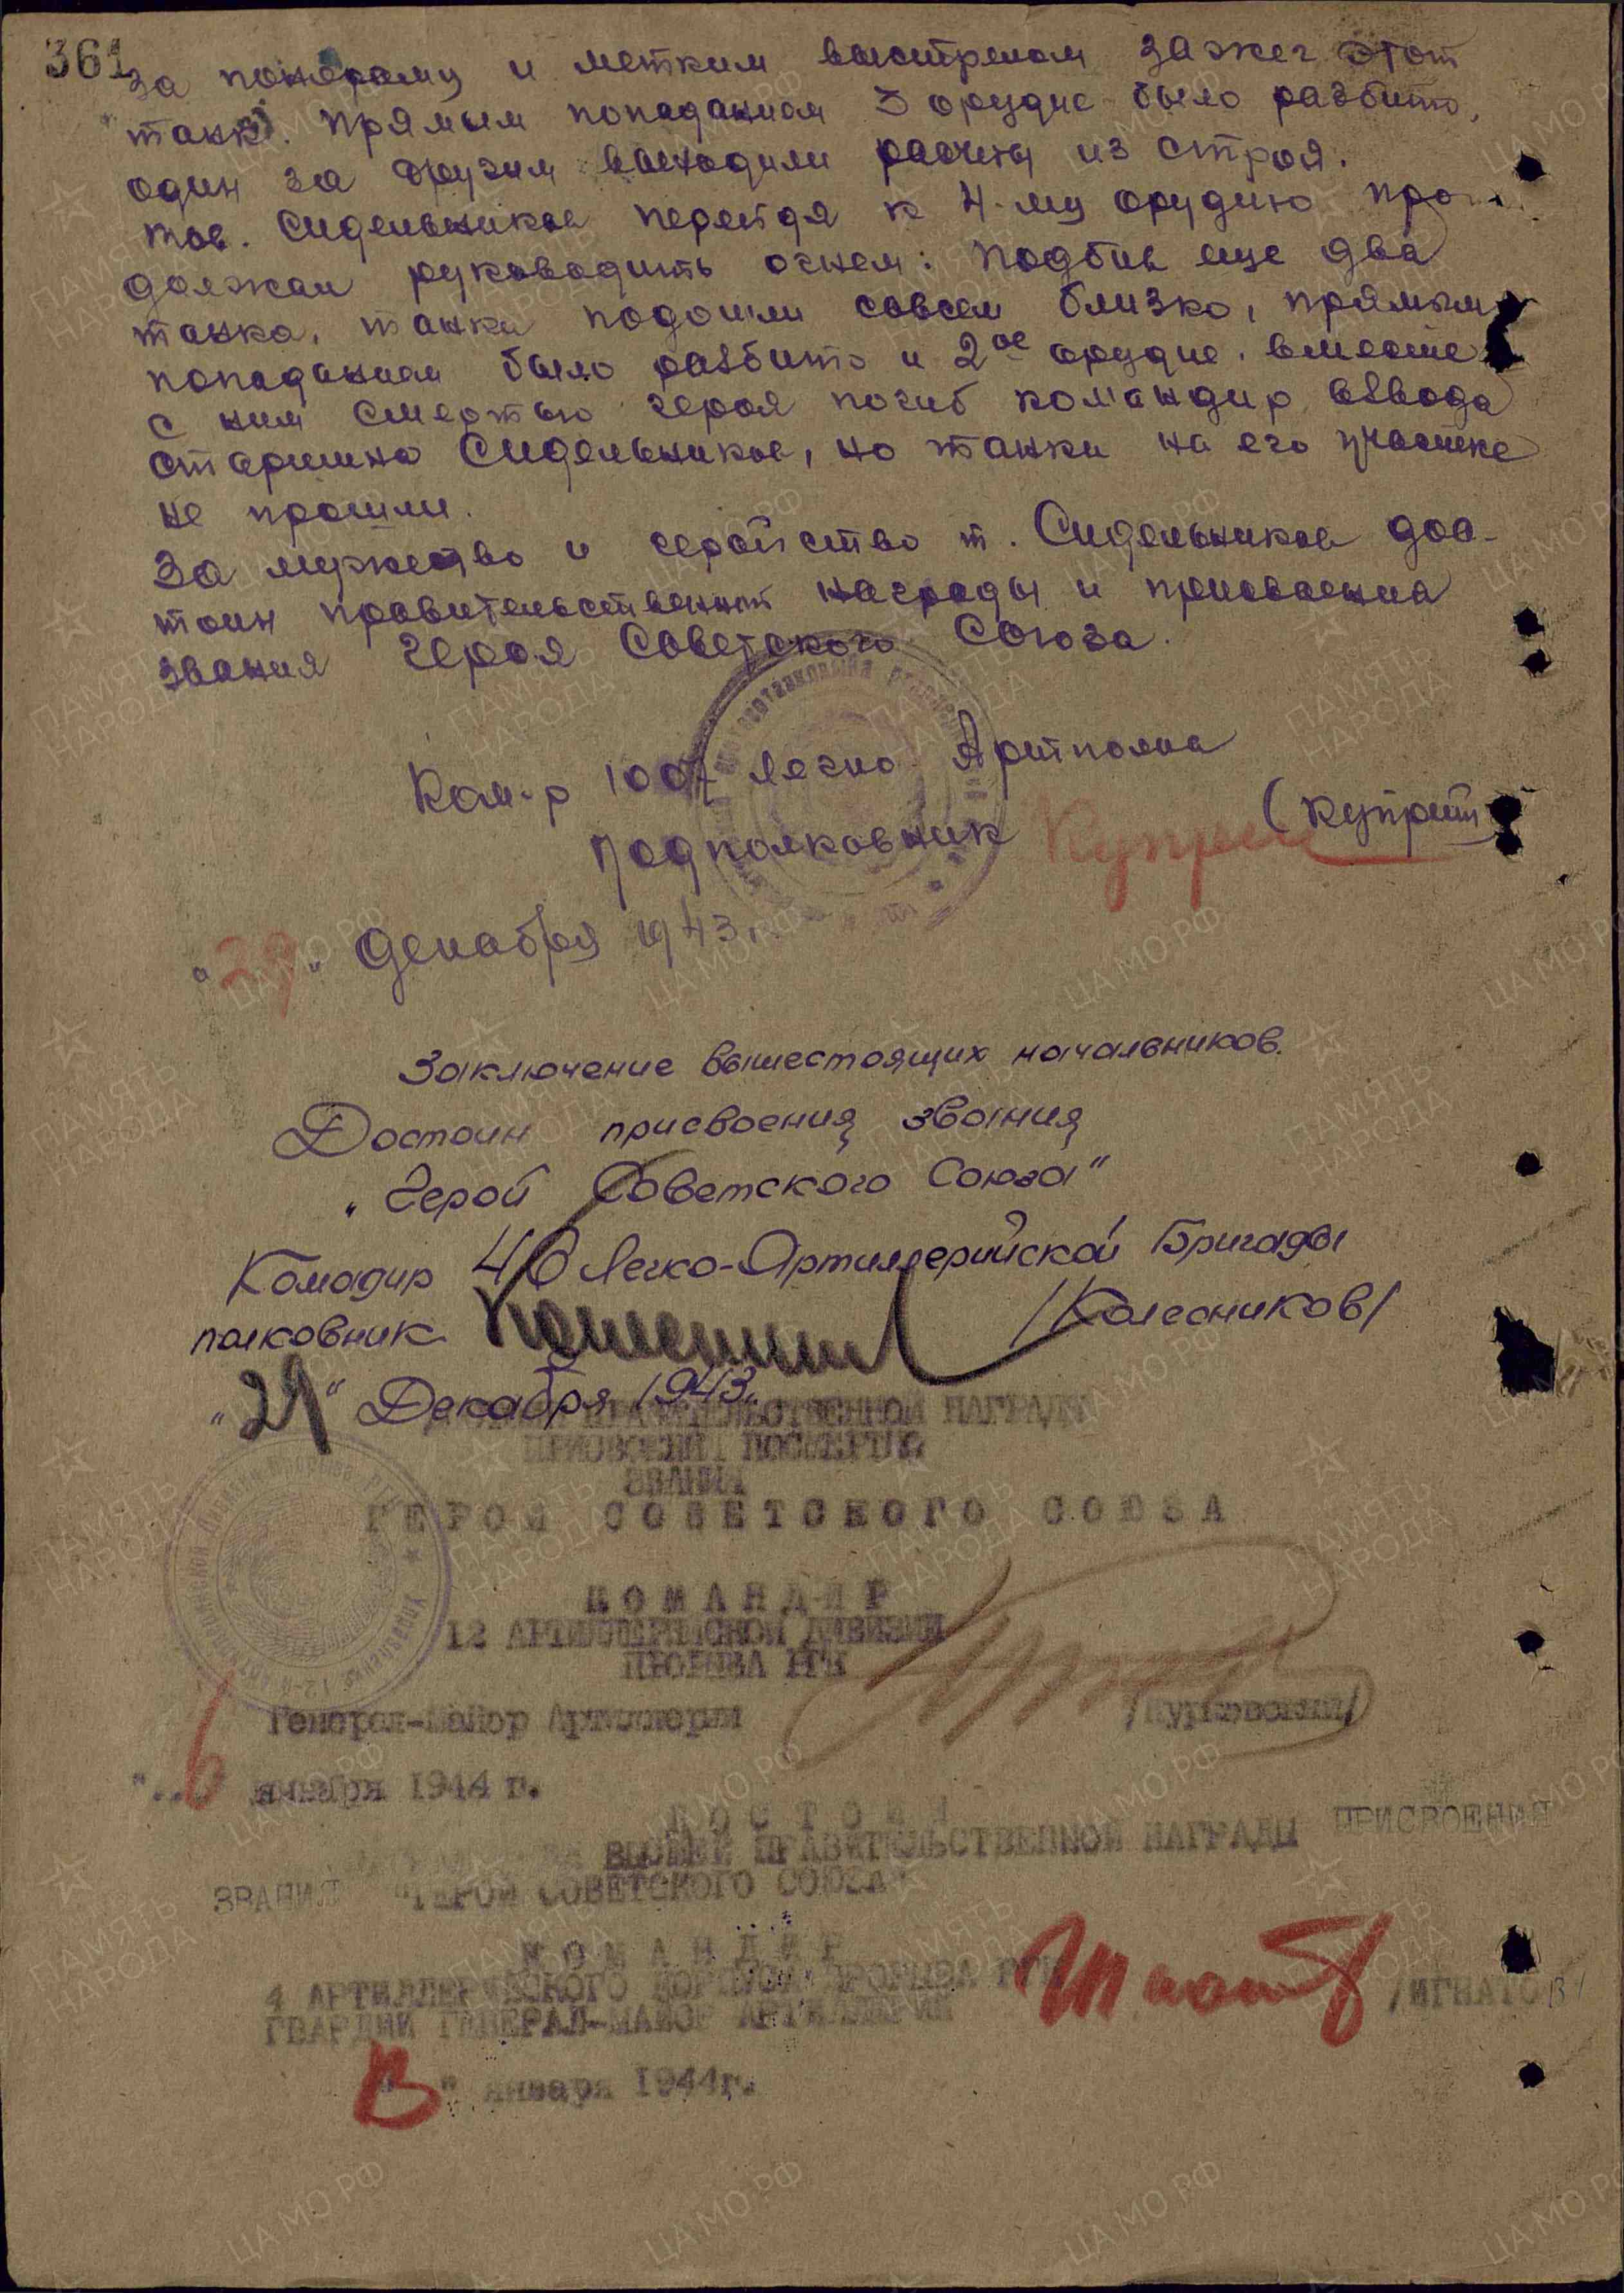 361
за понораму и метким выстрелом зажег этот
танк. Прямым попаданием 3 орудие было разбито,
один за другим выходили расчеты из строя.
тов. Сидельников перейдя к 4-му орудию про
должал руководить огнем. Подбив еще два
танка, танки подошли совсем близко, прямым
попаданием было разбито и 2ое орудие. вместе
с ним смертью героя погиб командир взвода
старшина Сидельников, но танки на его участке
не прошли.
За мужество и геройство т. Сидельников дос-
тоин правительственной награды и присвоения
звания Героя Советского Союза.
Ком-р 1007 легко Артполка
подполковник Купрей (Куприй)
" 29 " декабря 1943 г.
Заключение вышестоящих начальников.
Достоин присвоения звания
"Герой Советского Союза"
Комадир 46 Легко-Артиллерийской Бригады
полковник /Колесников/
"29" Декабря 1943.
ПРАВИТЕЛЬСТВЕННОЙ НАГРАДЫ
ПРИСВОЕНИЯ ПОСМЕРТНО
ЗВАНИЯ
ГЕРОЯ СОВЕТСКОГО СОЮЗА
КОМАНДИР
12 АРТИЛЛЕРИЙСКОЙ ДИВИЗИИ
ПРОРЫВА РГК
Генерал-Майор Артиллерии /Курковский/
"6" января 1944 г.
ДОСТОИН
ВЫСШЕЙ ПРАВИТЕЛЬСТВЕННОЙ НАГРАДЫ ПРИСВОЕНИЯ
ЗВАНИЯ "ГЕРОЙ СОВЕТСКОГО СОЮЗА"
КОМАНДИР
4 АРТИЛЛЕРИЙСКОГО КОРПУСА ПРОРЫВА РГК
ГВАРДИИ ГЕНЕРАЛ-МАЙОР АРТИЛЛЕРИИ /ИГНАТОВ/
" января 1944г.